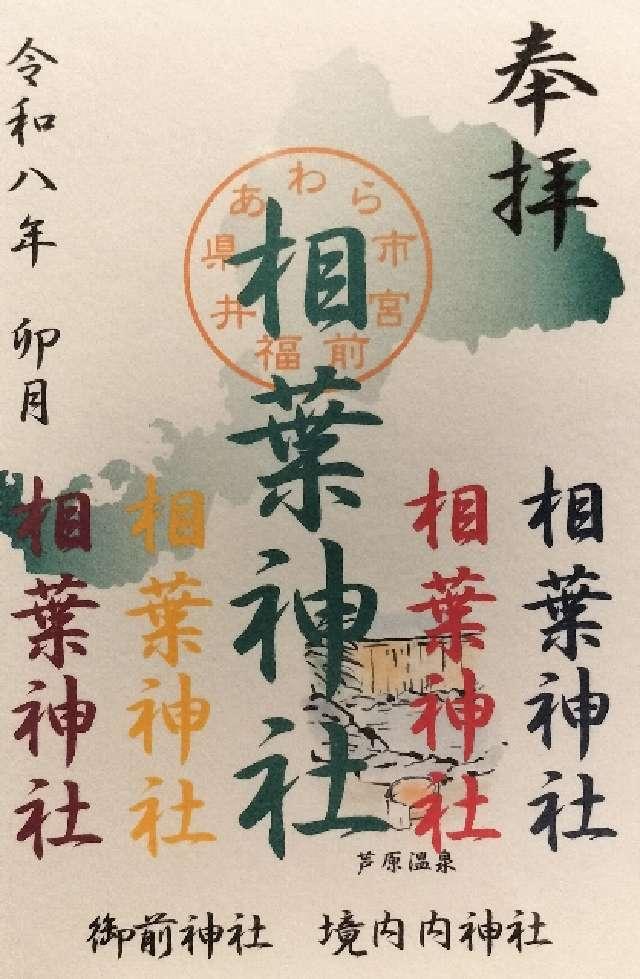 奉拝
相葉神社
相葉神社
福井県あわら市宮前
相葉神社
相葉神社
相葉神社
令和八年 卯月
芦原温泉
御前神社 境内内神社